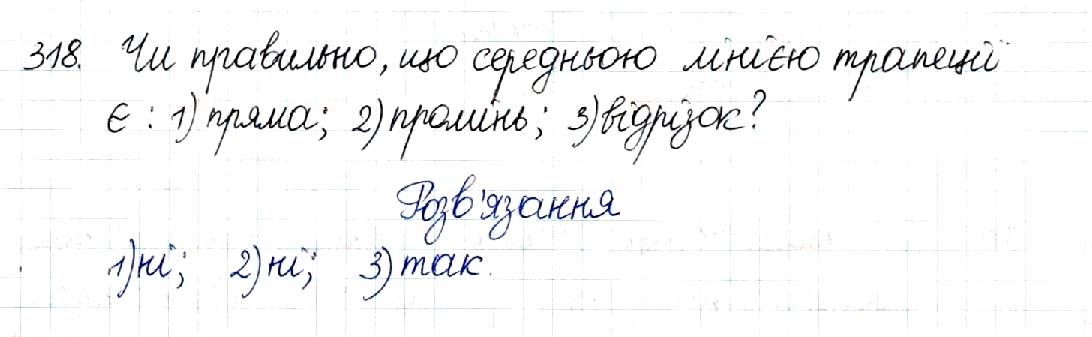 318. Чи правильно, що середньою лінією трапеції
є : 1) пряма; 2) промінь; 3) відрізок?
Розв'язання
1) ні; 2) ні; 3) так.